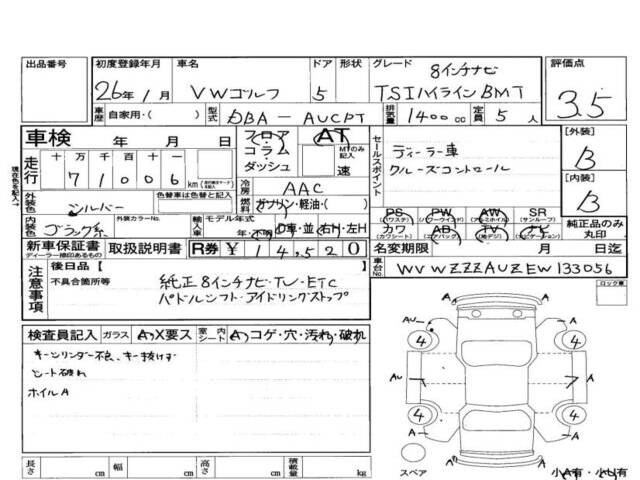 出品番号 初度登録年月 車名 ドア 形状 グレード 評価点
26年 1月 VWゴルフ 5 8インチナビ
TSIハイラインBMT 3.5
車歴 自家用・( ) 型式 DBA-AUCPT 排気量 1400cc 定員 5人
車検 年 月 日 フロア コラム ダッシュ AT MTのみ記入 速
セールスポイント ディーラー車
クルーズコントロール
[外装] B
走行 十万千百十一
71006 km
冷房 AAC
[内装] B
外装色 シルバー 色替車は色替と記入 燃料 ガソリン・軽油・( )
内装色 ブラック系 外装カラーNo. 輸入車 モデル年式
年・不明 D車・並 右H・左H
PS PW AW SR 純正品のみ
カワ AB TV ナビ 丸印
新車保証書 取扱説明書 R券 ¥14,520 名変期限 月 日迄
ディーラー捺印のあるもの
注意事項 後日品[ ]
不具合箇所等 純正8インチナビ・TV・ETC
パドルシフト・アイドリングストップ
車台No. WVWZZZAUZEW133056
ロック車
検査員記入 ガラス A・X要ス 室内シート A・コゲ・穴・汚れ・破れ
キーシリンダー不良、キー抜けず
シート破れ
ホイルA
AU A
4 4
AU A
4 4
A A
A
スペア 小A有・小U有
長さ cm 幅 cm 高さ cm 積載量 kg